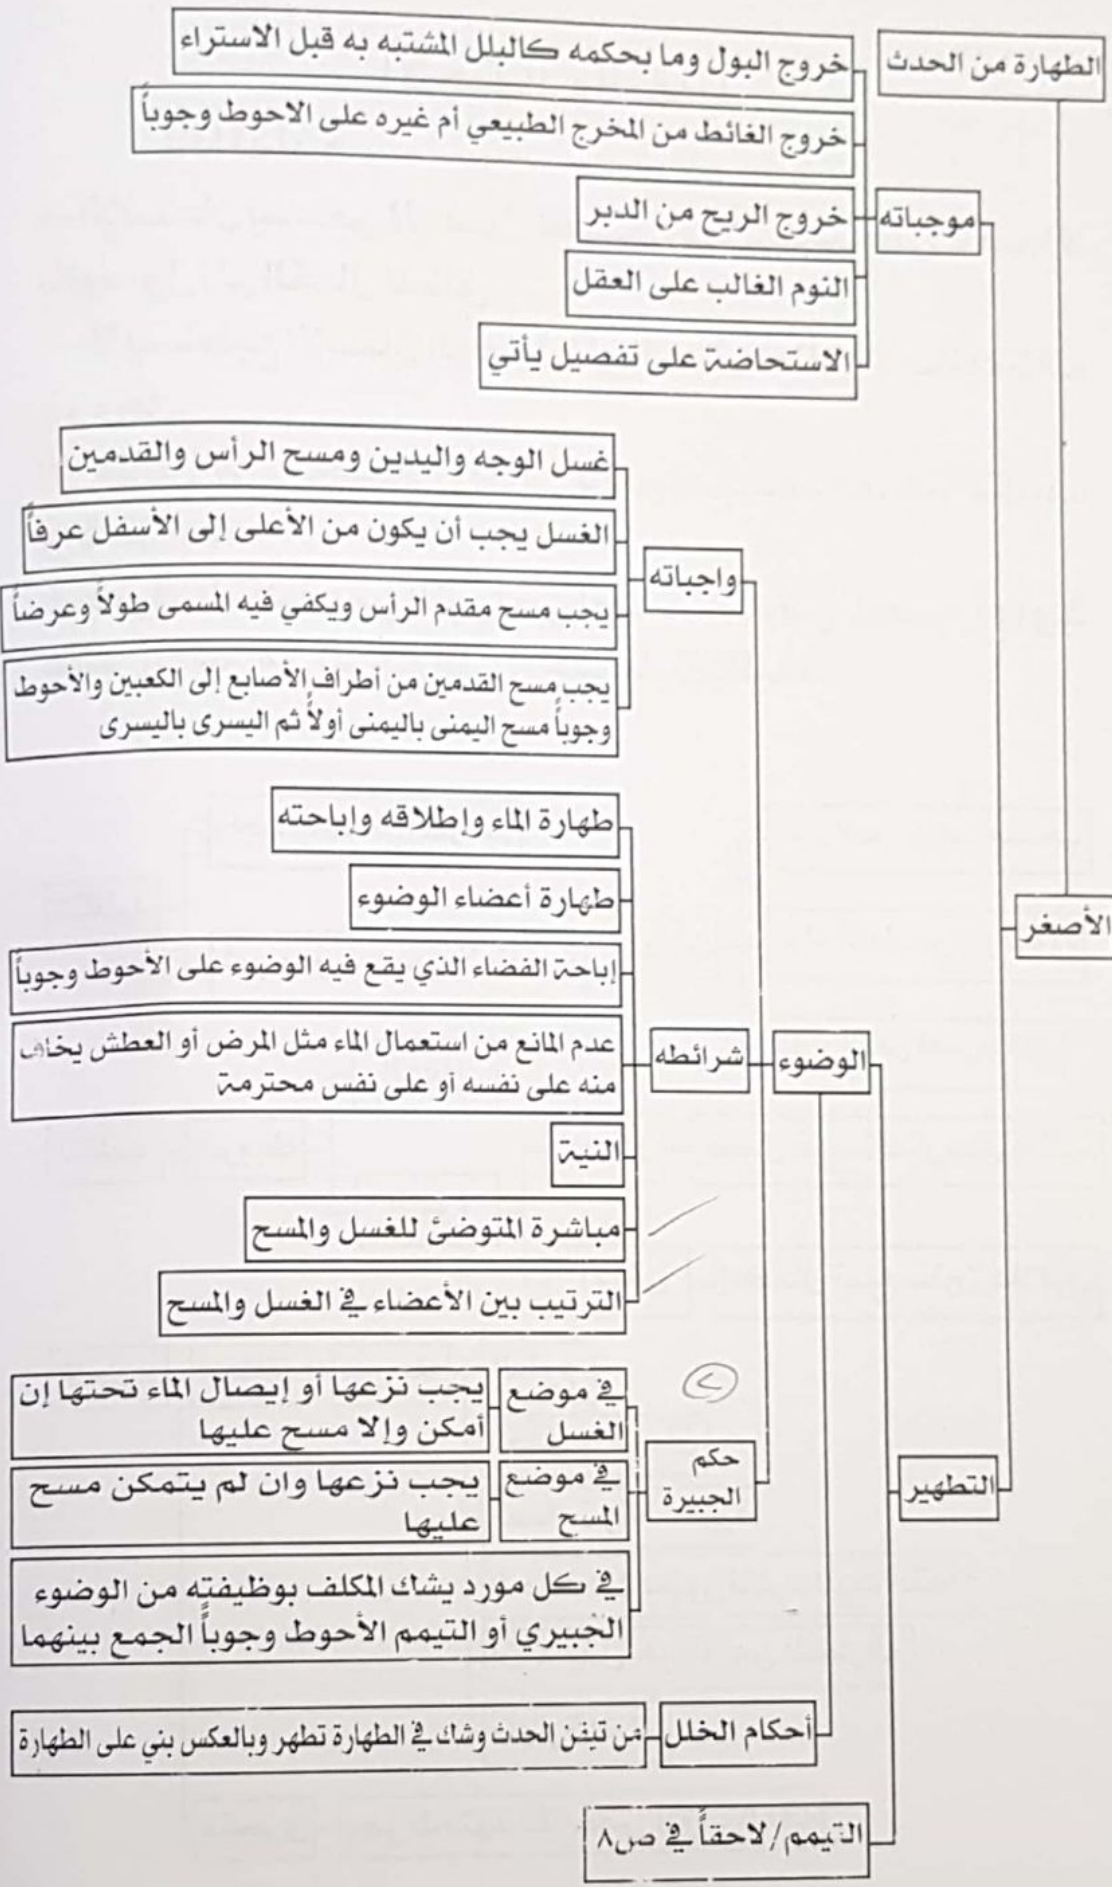 الطهارة من الحدث
الأصغر
موجباته
خروج البول وما بحكمه كالبلل المشتبه به قبل الاستراء
خروج الغائط من المخرج الطبيعي أم غيره على الاحوط وجوباً
خروج الريح من الدبر
النوم الغالب على العقل
الاستحاضة على تفصيل يأتي
التطهير
الوضوء
واجباته
غسل الوجه واليدين ومسح الرأس والقدمين
الغسل يجب أن يكون من الأعلى إلى الأسفل عرفاً
يجب مسح مقدم الرأس ويكفي فيه المسمى طولاً وعرضاً
يجب مسح القدمين من أطراف الأصابع إلى الكعبين والأحوط
وجوباً مسح اليمنى باليمنى أولاً ثم اليسرى باليسرى
شرائطه
طهارة الماء وإطلاقه وإباحته
طهارة أعضاء الوضوء
إباحة الفضاء الذي يقع فيه الوضوء على الأحوط وجوباً
عدم المانع من استعمال الماء مثل المرض أو العطش يخاف
منه على نفسه أو على نفس محترمة
النية
مباشرة المتوضئ للغسل والمسح
الترتيب بين الأعضاء في الغسل والمسح
حكم
الجبيرة
في موضع
الغسل
يجب نزعها أو إيصال الماء تحتها إن
أمكن وإلا مسح عليها
في موضع
المسح
يجب نزعها وان لم يتمكن مسح
عليها
في كل مورد يشك المكلف بوظيفته من الوضوء
الجبيري أو التيمم الأحوط وجوباً الجمع بينهما
أحكام الخلل
من تيقن الحدث وشك في الطهارة تطهر وبالعكس بني على الطهارة
التيمم/لاحقاً في ص٨